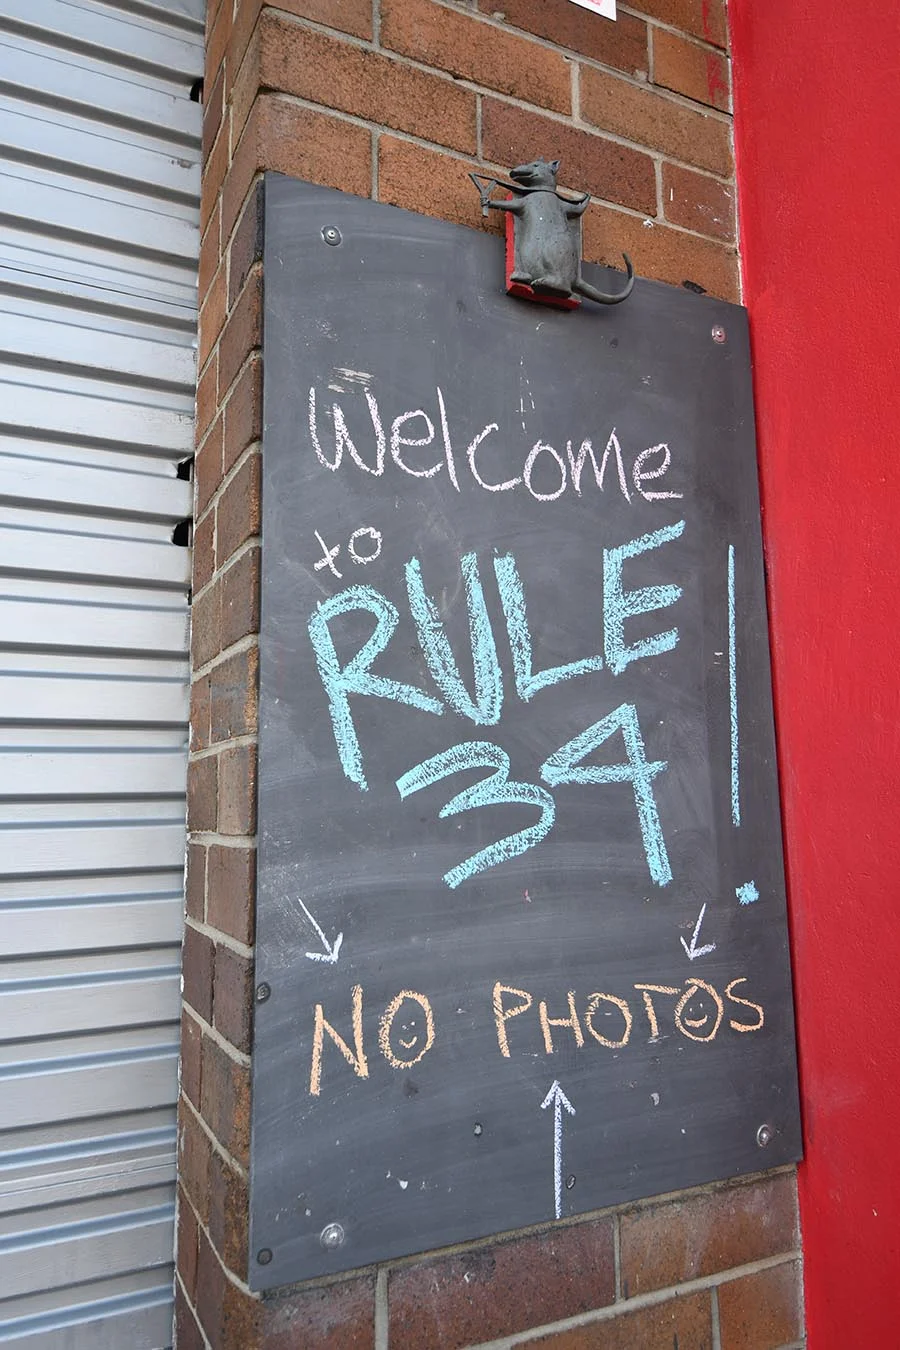 Welcome
to
RULE
34!
NO PHOTOS